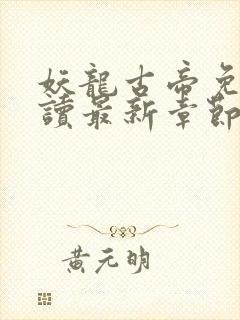 妖龍古帝免
讀最新章節
黃元明